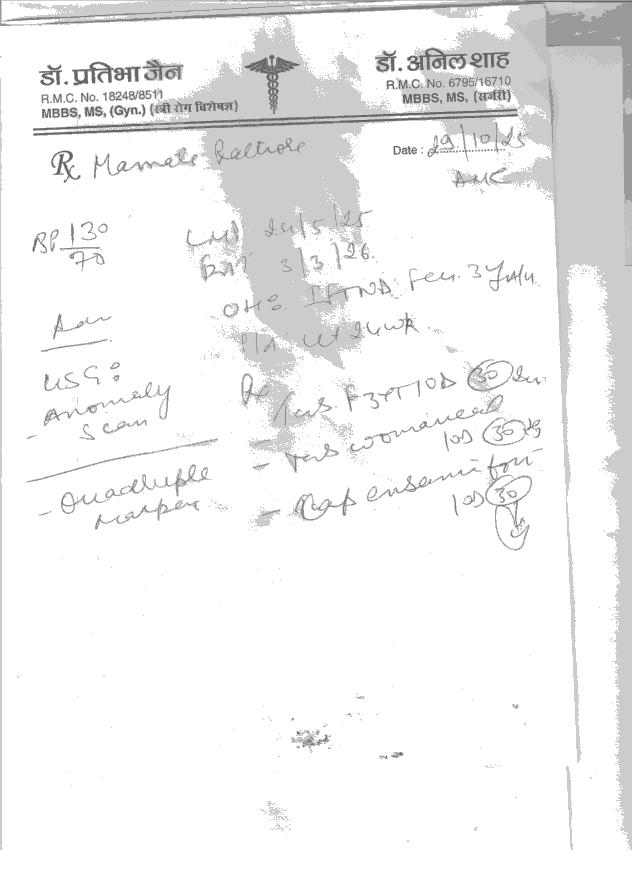 डॉ. प्रतिभा जैन
R.M.C. No. 18248/8511
MBBS, MS, (Gyn.) (स्त्री रोग विशेषज्ञ)
डॉ. अनिल शाह
R.M.C. No. 6795/16710
MBBS, MS, (सर्जरी)
Rx Mamata Rathore
Date : 29/10/25
ANC
BP 130/70
LMP 24/5/25
EDD 3/3/26
OH: FTND Fem. 3
P/A ut 24wk
USG:
- Anomaly
Scan
- Quadruple
marker
Rx
Tab. 1OD 30
- Tab womaneed
1OD 30
- Cap
1OD 30